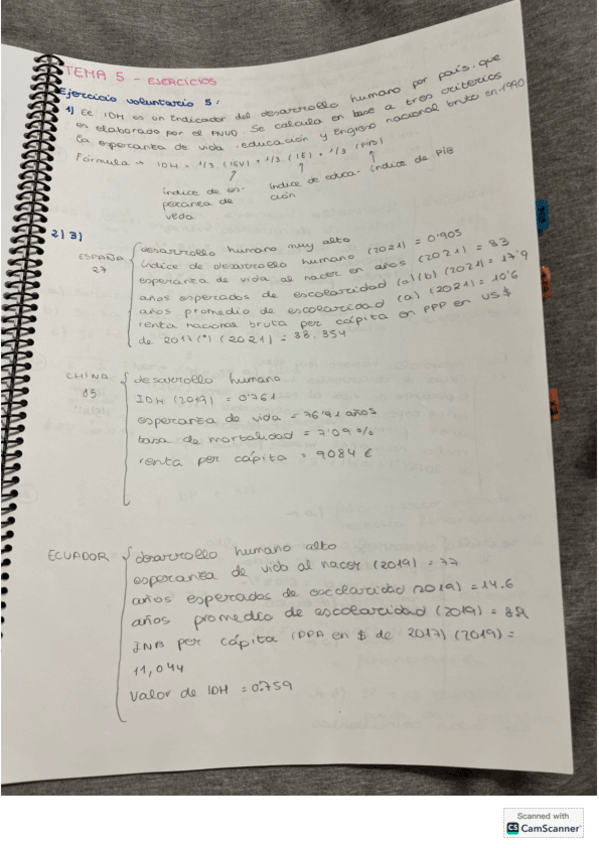 TEMA 5 - EJERCICIOS
Ejercicio voluntario 5:
1) El IDH es un Indicador del desarrollo humano por país, que
es elaborado por el PNUD. Se calcula en base a tres criterios
la esperanza de vida, educación y Ingreso nacional bruto en 1990
Fórmula → IDH = 1/3 (IEV) + 1/3 (IE) + 1/3 (PIB)
índice de es-
peranza de
vida
índice de educa-
ción
índice de PIB
2) 3)
ESPAÑA
27
desarrollo humano muy alto
índice de desarrollo humano (2021) = 0'905
esperanza de vida al nacer en años (2021) = 83
años esperados de escolaridad (a)(b) (2021) = 17'9
años promedio de escolaridad (a) (2021) = 10'6
renta nacional bruta per cápita en PPP en US$
de 2017(*) (2021) = 38.354
CHINA
85
desarrollo humano
IDH (2019) = 0'761
esperanza de vida = 76'91 años
tasa de mortalidad = 7'09 %
renta per cápita = 9084 €
ECUADOR
desarrollo humano alto
esperanza de vida al nacer (2019) = 77
años esperados de escolaridad (2019) = 14.6
años promedio de escolaridad (2019) =
INB per cápita (PPA en $ de 2017) (2019) =
11,044
Valor de IDH = 0.759
Scanned with
CS CamScanner